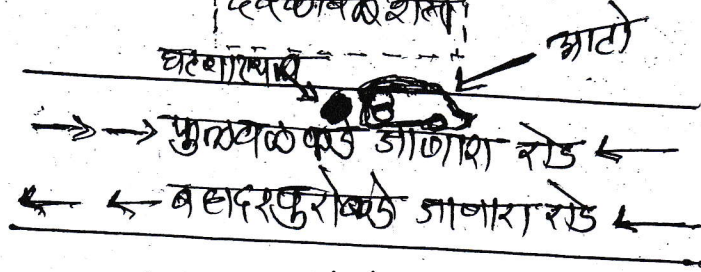 आटो
घटनास्थळ
फुलवळकडे जाणारा रोड
बहादरपुरीकडे जाणारा रोड